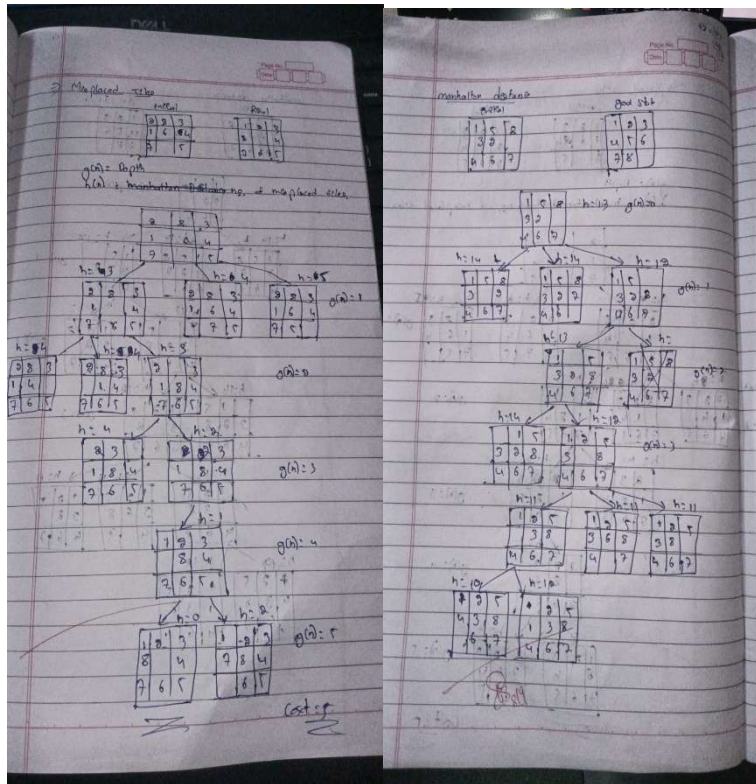 Page No.
Date
Misplaced tiles
2 8 3
1 6 4
7 5
1 2 3
8 4
7 6 5
g(n) = Depth
h(n) = no. of misplaced tiles
2 8 3
1 6 4
7 5
h=3
h=4
h=5
2 8 3
1 4
7 6 5
2 8 3
1 6 4
7 5
2 8 3
1 6 4
7 5
g(n)=1
h=4
h=3
2 8 3
1 4
7 6 5
2 8 3
1 4
7 6 5
2 3
1 8 4
7 6 5
g(n)=2
h=4
h=2
2 3
1 8 4
7 6 5
2 3
1 8 4
7 6 5
g(n)=3
h=1
1 2 3
8 4
7 6 5
g(n)=4
h=0
h=2
1 2 3
8 4
7 6 5
1 2 3
7 8 4
6 5
g(n)=5
Page No.
Date
manhattan distance
goal state
1 5 8
3 2
4 6 7
1 2 3
4 5 6
7 8
1 5 8
3 2
6 7
h=13
g(n)=0
h=14
h=14
h=12
1 5 8
3 2
4 6 7
1 5 8
3 2 7
4 6
1 5
3 2 8
4 6 7
g(n)=1
h=13
h=
1 5
3 2 8
4 6 7
1 5 8
3 2
4 6 7
g(n)=2
h=14
h=12
1 5
3 2 8
4 6 7
1 2 5
3 8
4 6 7
g(n)=3
h=11
h=11
h=11
1 2 5
3 8
4 6 7
1 2 5
3 6 8
4 7
1 2 5
3 8
4 6 7
h=10
h=12
1 2 5
4 3 8
6 7
2 5
1 3 8
4 6 7